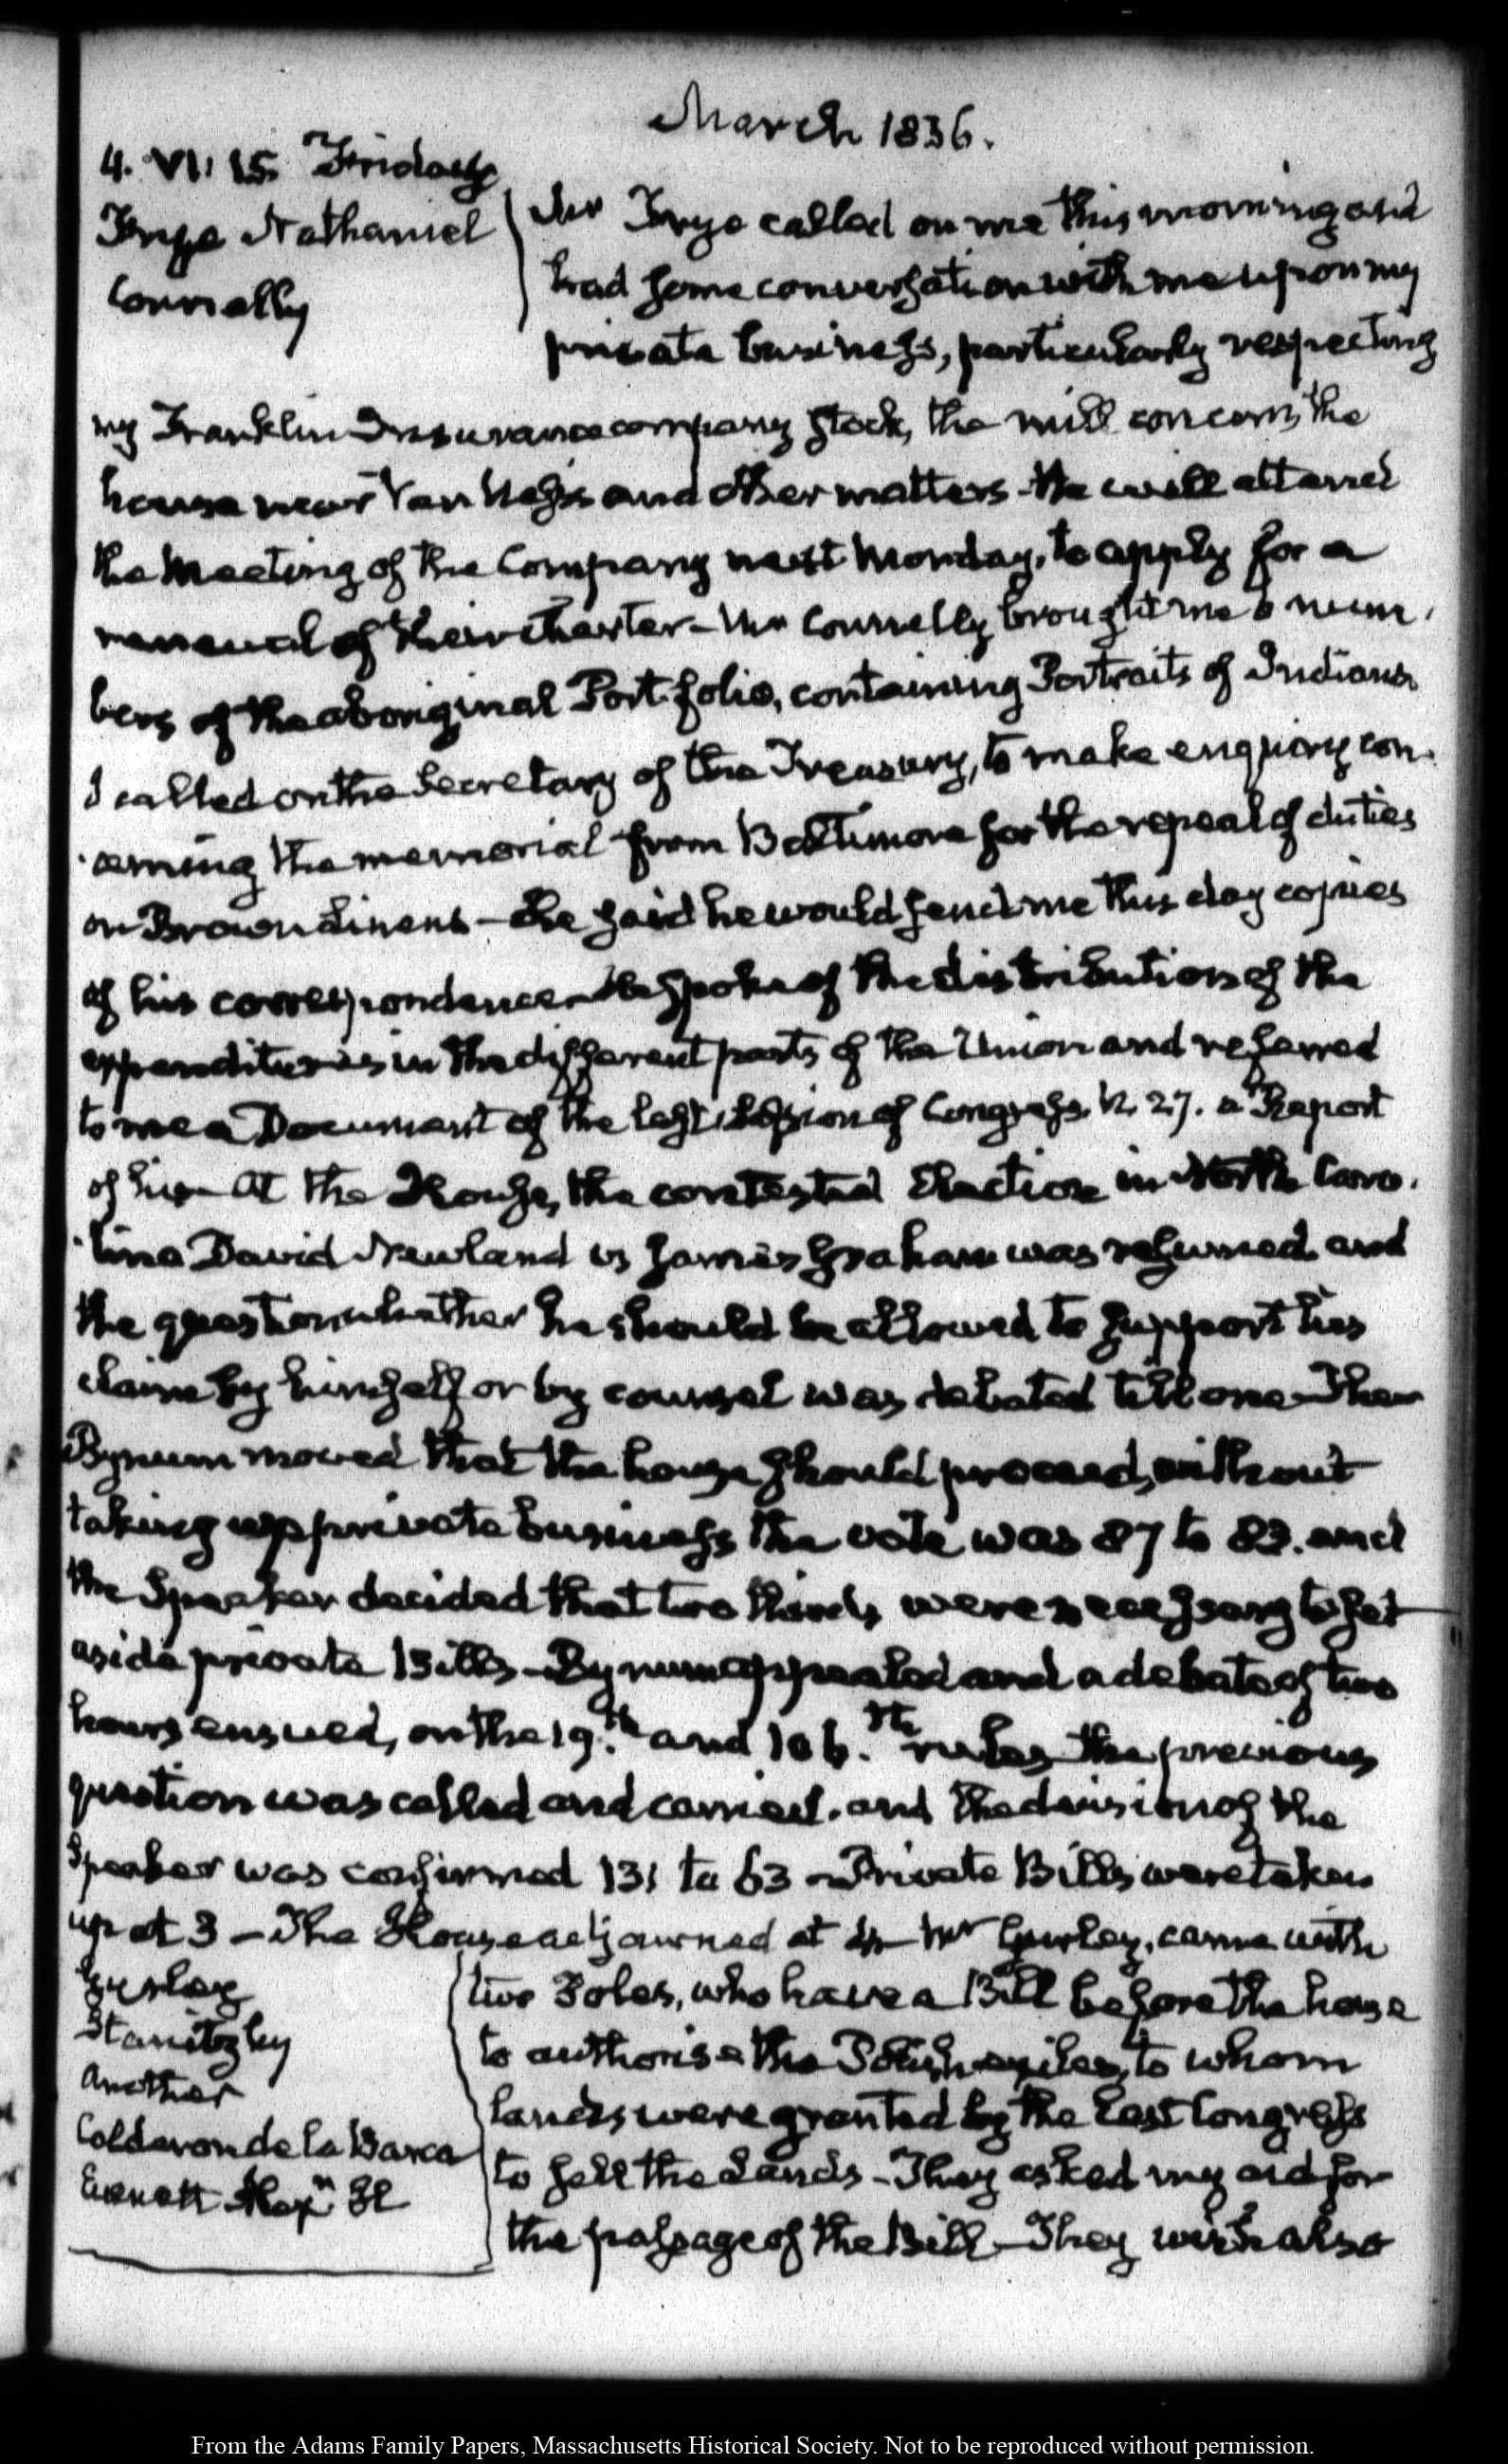 March 1836.
4. VI: 15. Friday
Frye Nathaniel
Connelly
Mr Frye called on me this morning and
had some conversation with me upon my
private business, particularly respecting
my Franklin Insurance company stock, the mill concern, the
house near Van Ness's and other matters. He will attend
the Meeting of the Company next Monday, to apply for a
renewal of their charter— Mr Connelly brought me num-
bers of the aboriginal Port-folio, containing Portraits of Indians
I called on the Secretary of the Treasury, to make enquiry con-
-cerning the memorial from Baltimore for the repeal of duties
on Brown Linens— He said he would send me this day copies
of his correspondence— He spoke of the distribution of the
expenditures in the different parts of the Union and referred
to me a Document of the last Session of Congress. N. 27. a Report
of his— At the House, the contested Election in North Caro-
-lina David Newland vs James Graham was resumed. and
the question whether he should be allowed to support his
claim by himself or by counsel was debated till one— Then
Bynum moved that the house should proceed, without
taking up private business the vote was 87 to 83. and
the Speaker decided that two thirds were necessary to set
aside private Bills— Bynum appealed and a debate of two
hours ensued, on the 19.th and 106.th rules— the previous
question was called and carried. and the decision of the
Speaker was confirmed 131 to 63— Private Bills were taken
up at 3— The House adjourned at 4— Mr Gurley, came with
Gurley
Another
Calderon de la Barca
Everett Alexr H
two Poles, who have a Bill before the house
to authorise the Polish exiles, to whom
lands were granted by the last Congress
to sell the Lands— They asked my aid for
the passage of the Bill— They wish also
From the Adams Family Papers, Massachusetts Historical Society. Not to be reproduced without permission.